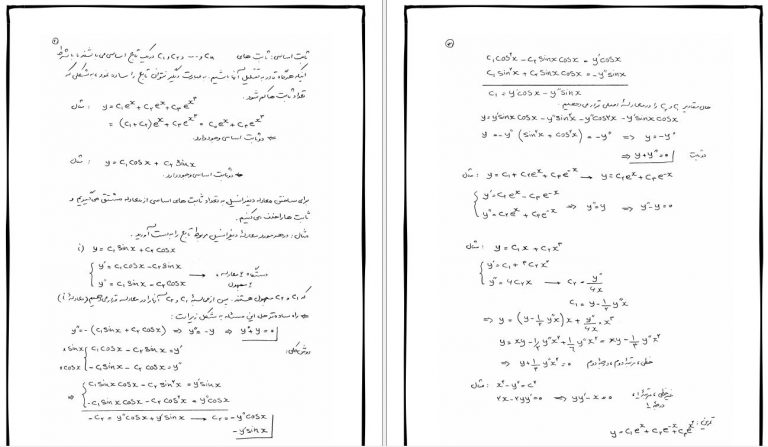 ثابت اساسی: ثابت های c₁ و c₂ و ... و cₙ در یک تابع اساسی می باشند، با شرط
آنکه هرگاه قادر به تشکیل آنها باشیم به عبارت دیگر نتوان تابع را ساده نمود به شکلی که
تعداد ثابت ها کم شود.
مثال: y = c₁eˣ + c₂eˣ + c₃eˣ³
= (c₁+c₂)eˣ + c₃eˣ³ = c₄eˣ + c₃eˣ³
دو ثابت اساسی وجود دارد.
مثال: y = c₁cosx + c₂sinx
دو ثابت اساسی وجود دارد.
برای ساختن معادله دیفرانسیل به تعداد ثابت های اساسی از معادله مشتق می گیریم و
ثابت ها را حذف می کنیم.
مثال: در هر مورد معادله دیفرانسیل مربوط تابع را به دست آورید.
i) y = c₁sinx + c₂cosx
y' = c₁cosx - c₂sinx
y'' = -c₁sinx - c₂cosx
دستگاه ۲ معادله و
۲ مجهول
که c₁ و c₂ مجهول هستند. پس از محاسبه c₁ و c₂ آنها را در معادله قرار می دهیم (معادله i)
راه ساده تر حل این مسئله به شکل زیر است:
y'' = -(c₁sinx + c₂cosx) ⇒ y'' = -y ⇒ y'' + y = 0
روش کلی:
×sinx c₁cosx - c₂sinx = y'
×cosx -c₁sinx - c₂cosx = y''
⇒ c₁sinx cosx - c₂sin²x = y'sinx
-c₁sinx cosx - c₂cos²x = y''cosx
-c₂ = y''cosx + y'sinx → c₂ = -y''cosx
-y'sinx
c₁cos²x - c₂sinx cosx = y'cosx
c₁sin²x + c₂sinx cosx = -y''sinx
c₁ = y'cosx - y''sinx
حال مقادیر c₁ و c₂ را در معادله اصلی قرار می دهیم
y = y'sinx cosx - y''sin²x - y''cos²x - y'sinx cosx
y = -y''(sin²x + cos²x) = -y'' ⇒ y = -y''
⇒ y + y'' = 0
مثال: y = c₁ + c₂eˣ + c₃e⁻ˣ → y = c₂eˣ + c₃e⁻ˣ
y' = c₂eˣ - c₃e⁻ˣ
y'' = c₂eˣ + c₃e⁻ˣ ⇒ y'' = y ⇒ y'' - y = 0
مثال: y = c₁x + c₂x⁳
y' = c₁ + ۳c₂x²
y'' = 6c₂x → c₂ = y''/6x
⇒ y + y''x² = 0 خطی، مرتبه دوم، درجه اول
مثال: x² - y² = c²
۲x - ۲yy' = 0 ⇒ yy' - x = 0
غیرخطی، مرتبه ۱،
درجه ۱
تمرین:
y = c₁eˣ + c₂e⁻ˣ + c₃eˣ